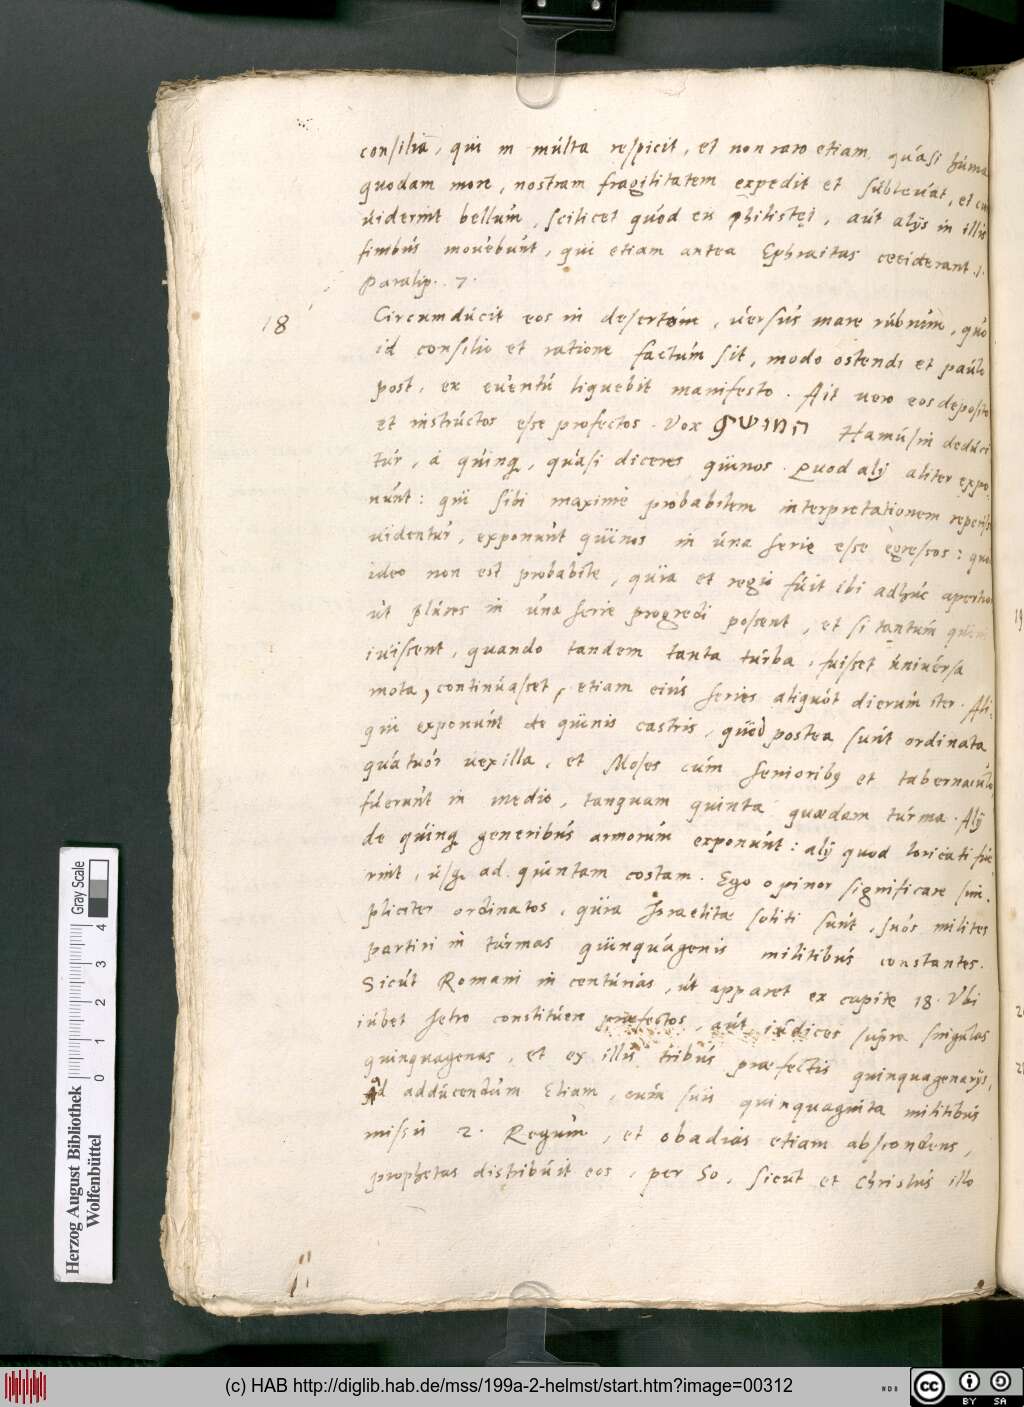 consilia, qui in multa respicit, et non raro etiam, quasi huma
quodam more, nostram fragilitatem expedit et sublevat, et cu
viderint bellum, scilicet quod eis philistęi, aut alijs in illis
finibus movebunt, qui etiam antea Ephraitas ceciderant .1.
Paralip. . 7 .
18 Circumducit eos in desertum, versus mare rubrum, quo
id consilio et ratione factum sit, modo ostendi et paulo
post, ex eventu liquebit manifesto . Ait vero eos deposito
et instructos esse profectos . Vox חמושים Hamusin deduci
tur, a quinq, quasi diceres quinos . Quod alij aliter expo
nunt : qui sibi maxime probabilem interpretationem reperisse
videntur, exponunt quinos in una serie esse egressos : quod
ideo non est probabile, quia et regio fuit ibi adhuc apertior
ut plures in una serie progredi possent, et si tantum quini
ivissent, quando tandem tanta turba, fuisset universa
mota, continuasset, etiam eius series aliquot dierum iter . Ali-
qui exponunt de quinis castris, quod postea sunt ordinata
quatuor vexilla, et Moses cum seniorib9 et tabernaculo
fuerunt in medio, tanquam quinta quædam turma . Alij
de quinq generibus armorum exponunt : alij quod loricati fue
rint, usq ad quintam costam . Ego opinor significare sim-
pliciter ordinatos, quia Israelitæ soliti sunt, suos milites
partiri in turmas quinquagenis militibus constantes .
Sicut Romani in centurias, ut apparet ex capite 18 . Ubi
iubet Jetro constituere præfectos, aut iudices supra singulas
quinquagenas, et ex illis tribus præfectis quinquagenarijs,
Ad adducendum Eliam, cum suis quinquaginta militibus
missis 2 . Regum, et Obadias etiam abscondens,
prophetas distribuit eos, per 50, sicut et Christus illo
Gray Scale
0 1 2 3 4
Herzog August Bibliothek
Wolfenbüttel
(c) HAB http://diglib.hab.de/mss/199a-2-helmst/start.htm?image=00312
cc BY SA